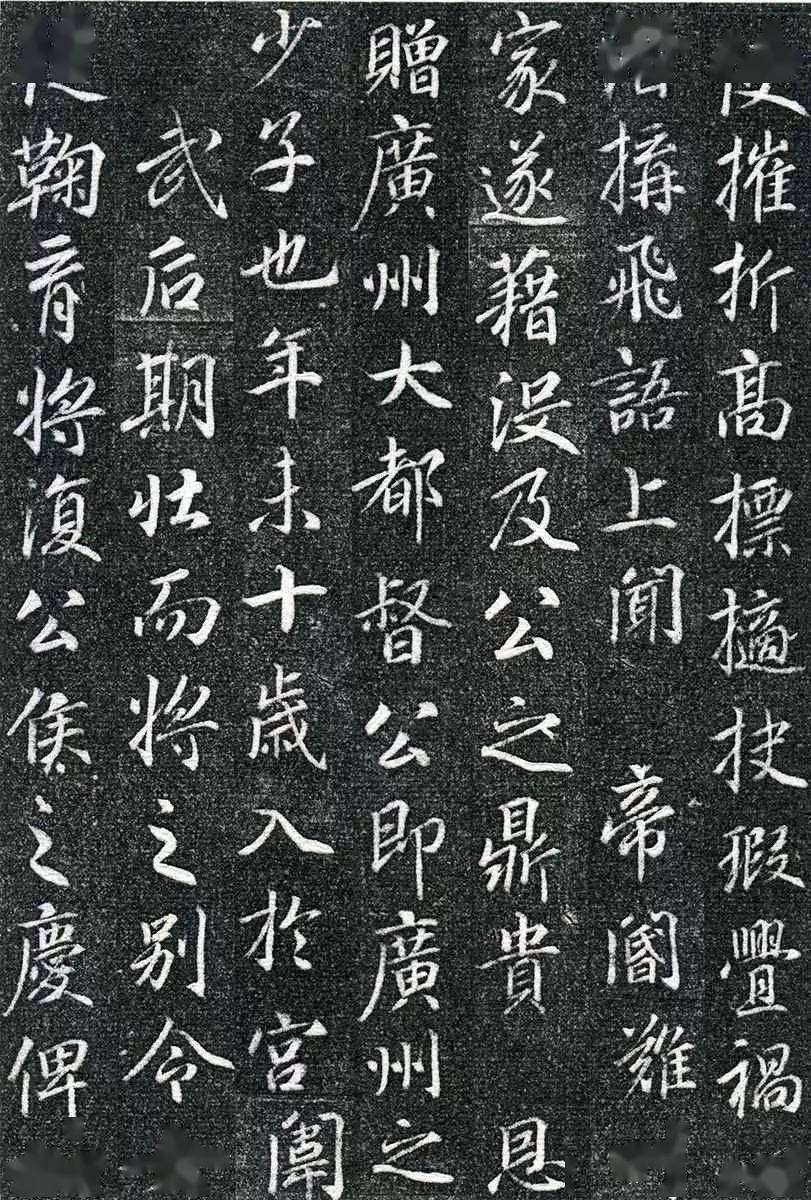 摧折高標擿抉瑕舋禍
搆飛語上聞帝閽難
家遂藉没及公之鼎貴恩
贈廣州大都督公即廣州之
少子也年未十歳入於宮闈
武后期壮而将之别令
鞠育将復公侯之慶俾